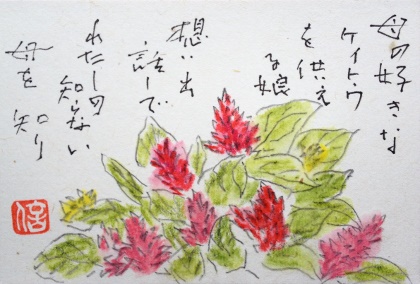 母の好きな
ケイトウ
を供え
る娘
想い出
話しで
わたしの
知らない
母を知り